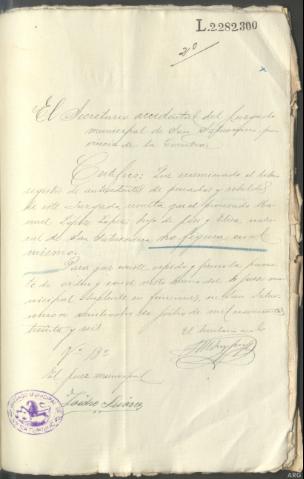 L.2.282,300
2º
El Secretario accidental del Juzgado
municipal de San Saturnino pro
vincia de la Coruña.
Certifico: Que examinado el libro
registro de antecedentes de penados y rebeldes
de este Juzgado, resulta que el procesado
Lopez Lopez, hijo de y natu
ral de San Saturnino no figura en el
mismo.
Para que conste, expido y firmo la presen
te de orden y con el visto bueno del Sr Juez mu
nicipal Suplente en funciones, en San Satur
nino a de julio de mil novecientos
treinta y seis
El Secretario
Vº Bº
El Juez municipal
Isidro
ARG